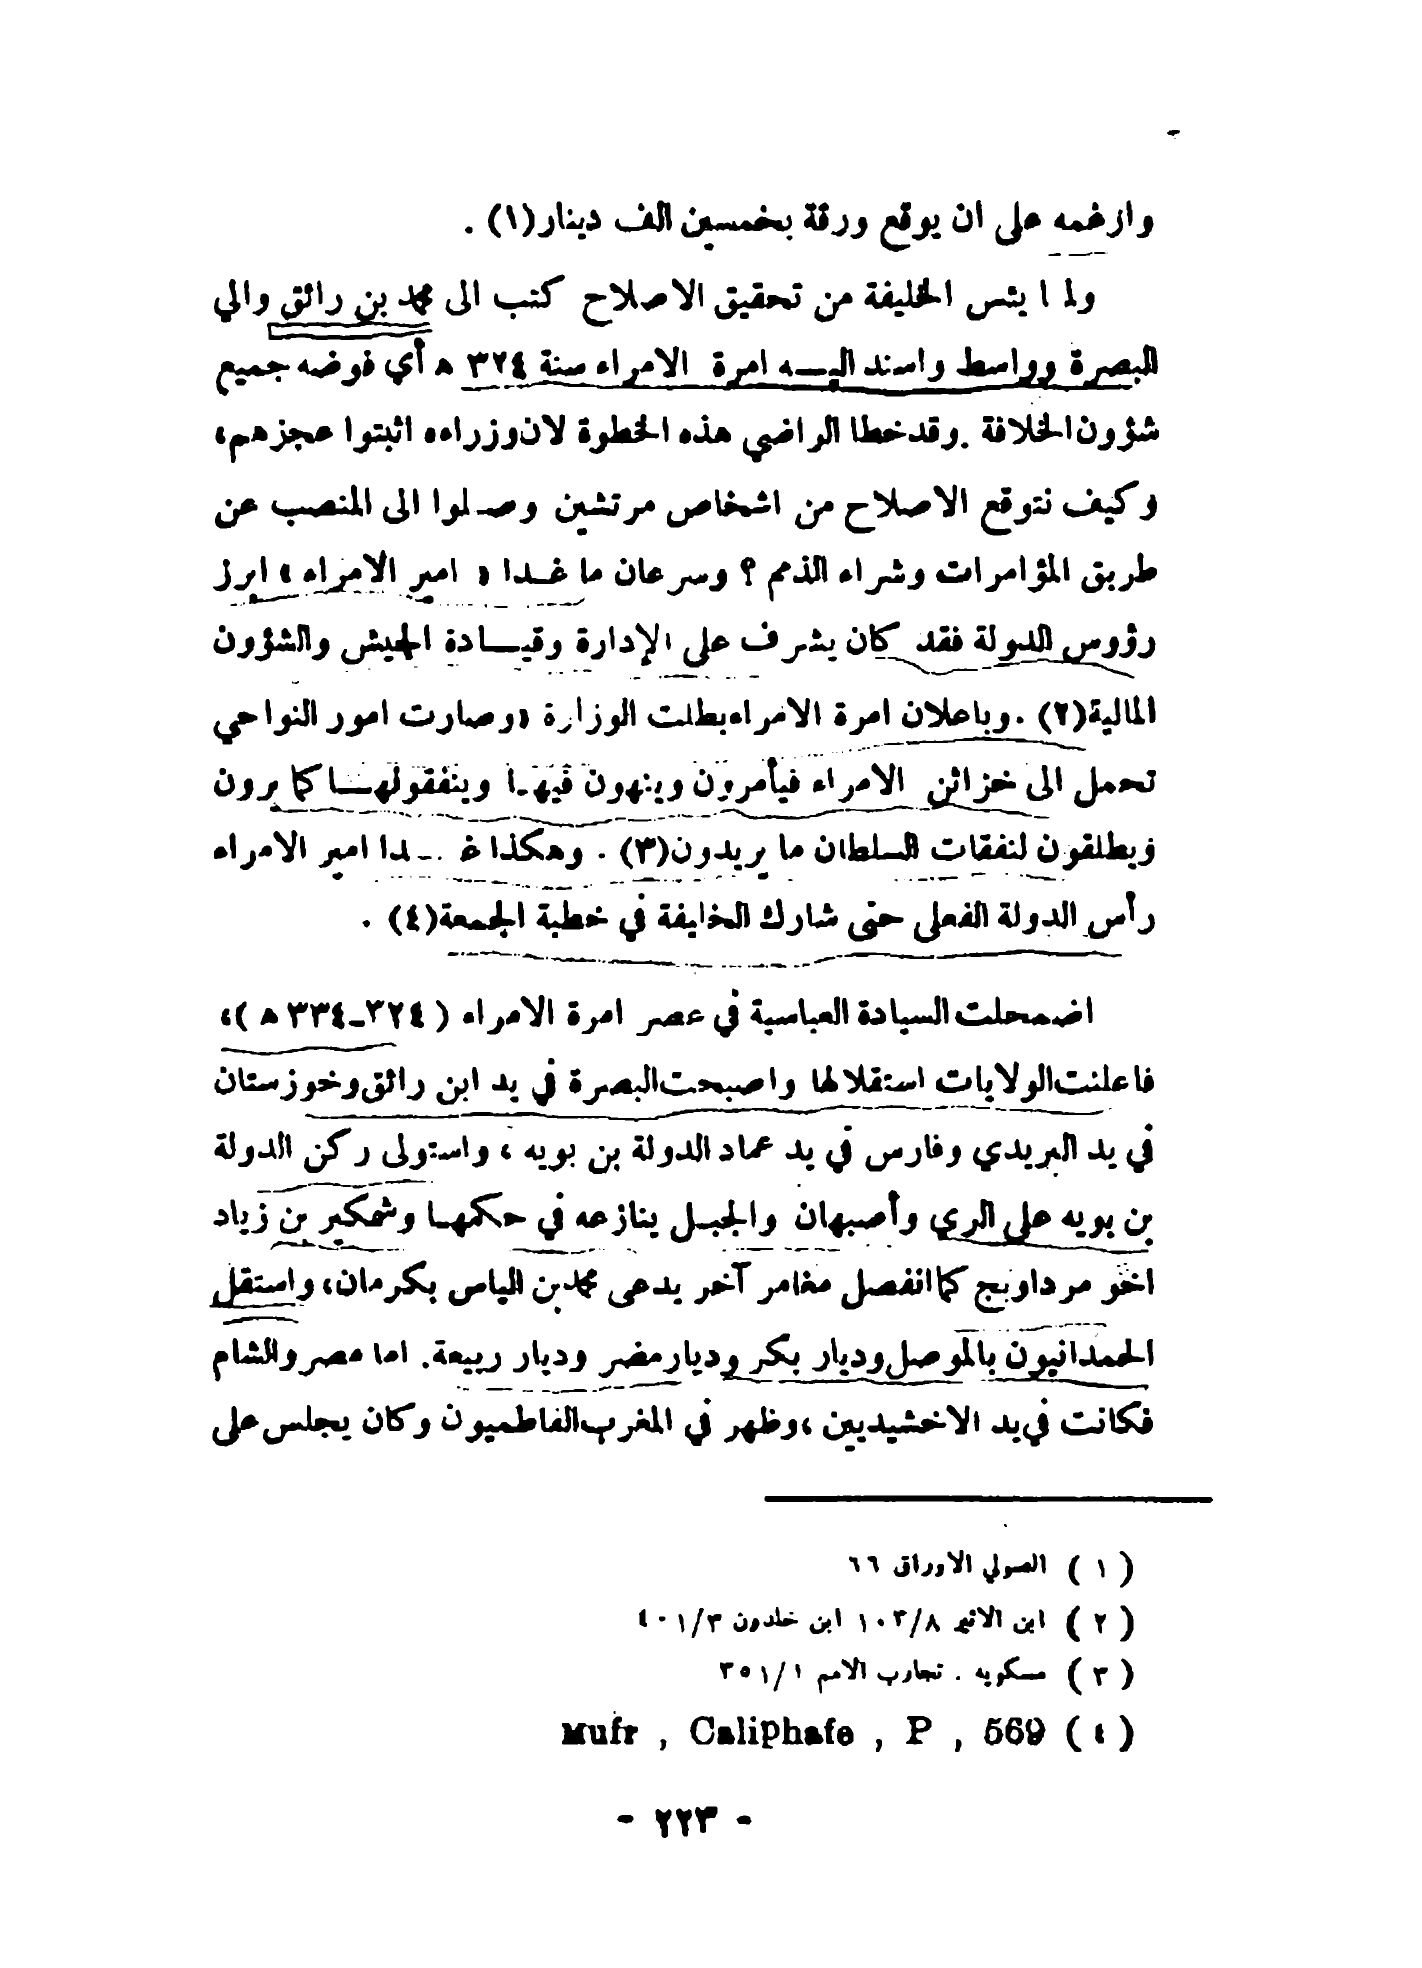 وارغمه على ان يوقع ورقة بخمسين الف دينار(١) .
ولما يئس الخليفة من تحقيق الاصلاح كتب الى محمد بن رائق والي
البصرة وواسط واسند اليـــه امرة الامراء سنة ٣٢٤ ه أي فوضه جميع
شؤون الخلافة .وقد خطا الراضي هذه الخطوة لان وزراءه اثبتوا عجزهم،
وكيف نتوقع الاصلاح من اشخاص مرتشين وصلوا الى المنصب عن
طريق المؤامرات وشراء الذمم ؟ وسرعان ما غــدا « امير الامراء » ابرز
رؤوس الدولة فقد كان يشرف على الإدارة وقيـــادة الجيش والشؤون
المالية(٢) .وباعلان امرة الامراء بطلت الوزارة «وصارت امور النواحي
تحمل الى خزائن الامراء فيأمرون وينهون فيهـا وينفقولهـــا كما يرون
ويطلقون لنفقات السلطان ما يريدون(٣) . وهكذا غــدا امير الامراء
رأس الدولة الفعلي حتى شارك الخليفة في خطبة الجمعة(٤) .
اضمحلت السيادة العباسية في عصر امرة الامراء ( ٣٢٤ـ٣٣٤ ه )،
فاعلنت الولايات استقلالها واصبحت البصرة في يد ابن رائق وخوزستان
في يد البريدي وفارس في يد عماد الدولة بن بويه ، واستولى ركن الدولة
بن بويه على الري وأصبهان والجبل ينازعه في حكمهـا وشمكير بن زياد
اخو مرداويج كما انفصل مغامر آخر يدعى محمد بن الياس بكرمان، واستقل
الحمدانيون بالموصل وديار بكر وديار مضر وديار ربيعة. اما مصر والشام
فكانت في يد الاخشيديين ،وظهر في المغرب الفاطميون وكان يجلس على
( ١ ) الصولي الاوراق ٦٦
( ٢ ) ابن الاثير ١٠٣/٨ ابن خلدون ٤٠١/٣
( ٣ ) مسكويه . تجارب الامم ٣٥١/١
( ٤ ) Mufr , Caliphafe , P , 569
- ٢٢٣ -